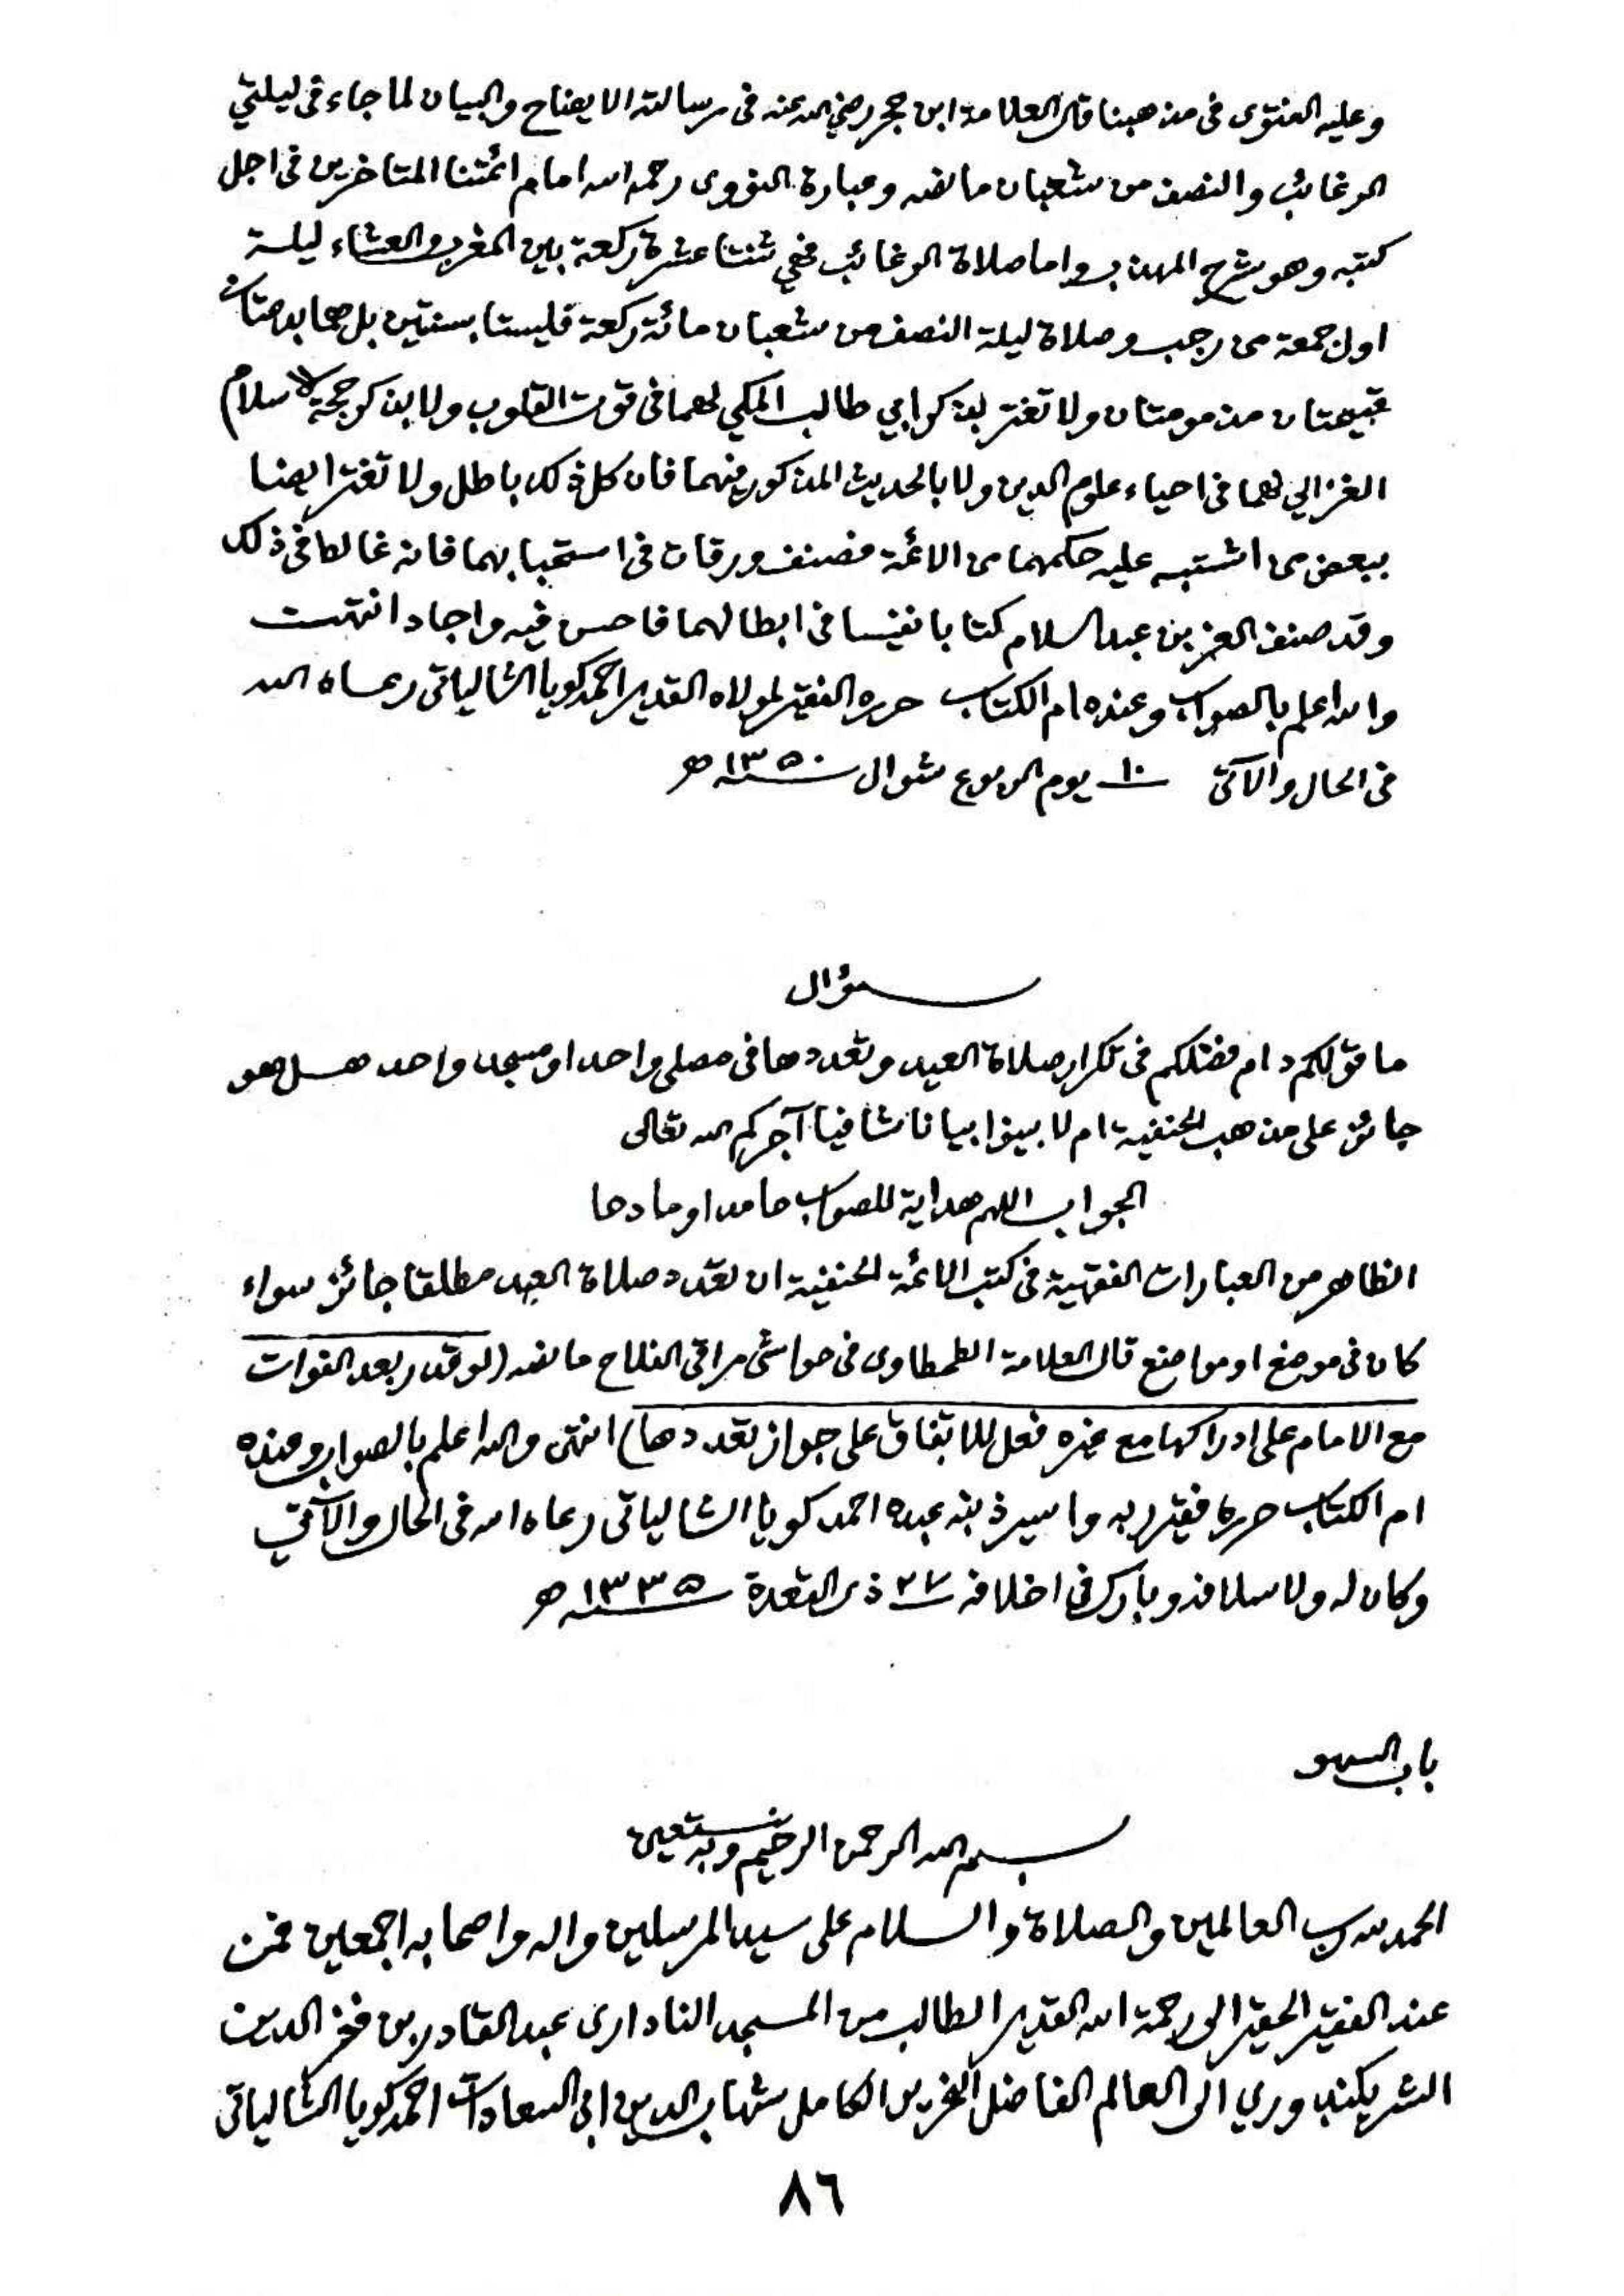 وعليه الفتوى فى مذهبنا قال العلامة ابن حجر رضي الله عنه فى رسالته الايضاح والبيان لما جاء فى ليلتي
الرغائب والنصف من شعبان ما نصه وعبارة النووى رحمه الله امام ائمتنا المتاخرين فى اجل
كتبه وهو شرح المهذب واما صلاة الرغائب فهي ثنتا عشرة ركعة بين المغرب والعشاء ليلة
اول جمعة من رجب وصلاة ليلة النصف من شعبان مائة ركعة فليستا بسنتين بل هما بدعتان
قبيحتان مذمومتان ولا تغتر بذكر ابي طالب المكي لهما فى قوت القلوب ولا بذكر حجة الاسلام
الغزالي لهما فى احياء علوم الدين ولا بالحديث المذكور فيهما فان كل ذلك باطل ولا تغتر ايضا
ببعض من اشتبه عليه حكمهما من الائمة فصنف ورقات فى استحبابهما فانه غالط فى ذلك
وقد صنف العز بن عبد السلام كتابا نفيسا فى ابطالهما فاحسن فيه واجاد انتهت
والله اعلم بالصواب وعنده ام الكتاب حرره الفقير لمولاه القدير احمد كويا الشالياتى رعاه الله
فى الحال والآتى ١٠ يوم الربوع شوال سنة ١٣٥٠ ھ
سؤال
ما قولكم دام فضلكم فى تكرار صلاة العيد وتعددها فى مصلى واحد او مسجد واحد هل هو
جائز على مذهب الحنفية ام لا بينوا بيانا شافيا آجركم الله تعالى
الجواب اللهم هداية للصواب حامدا ومادحا
الظاهر من العبارات الفقهية فى كتب الائمة الحنفية ان تعدد صلاة العيد مطلقا جائز سواء
كان فى موضع او مواضع قال العلامة الطحطاوى فى حواشى مراقى الفلاح ما نصه (لو قدر بعد الفوات
مع الامام على ادراكها مع غيره فعل للاتفاق على جواز تعددها) انتهى والله اعلم بالصواب وعنده
ام الكتاب حرره فقير ربه واسير ذنبه عبده احمد كويا الشالياتى رعاه الله فى الحال والآتي
وكان له ولاسلافه وبارك فى اخلافه ٢٧ ذى القعدة سنة ١٣٣٥ ھ
باب السهو
بسم الله الرحمن الرحيم وبه نستعين
الحمد لله رب العالمين والصلاة والسلام على سيد المرسلين واله واصحابه اجمعين فمن
عند الفقير الحقير الى رحمة الله القدير الطالب من المسجد النادارى عبد القادر بن فخر الدين
الشريكندوري الى العالم الفاضل النحرير الكامل شهاب الدين ابى السعادات احمد كويا الشالياتى
٨٦